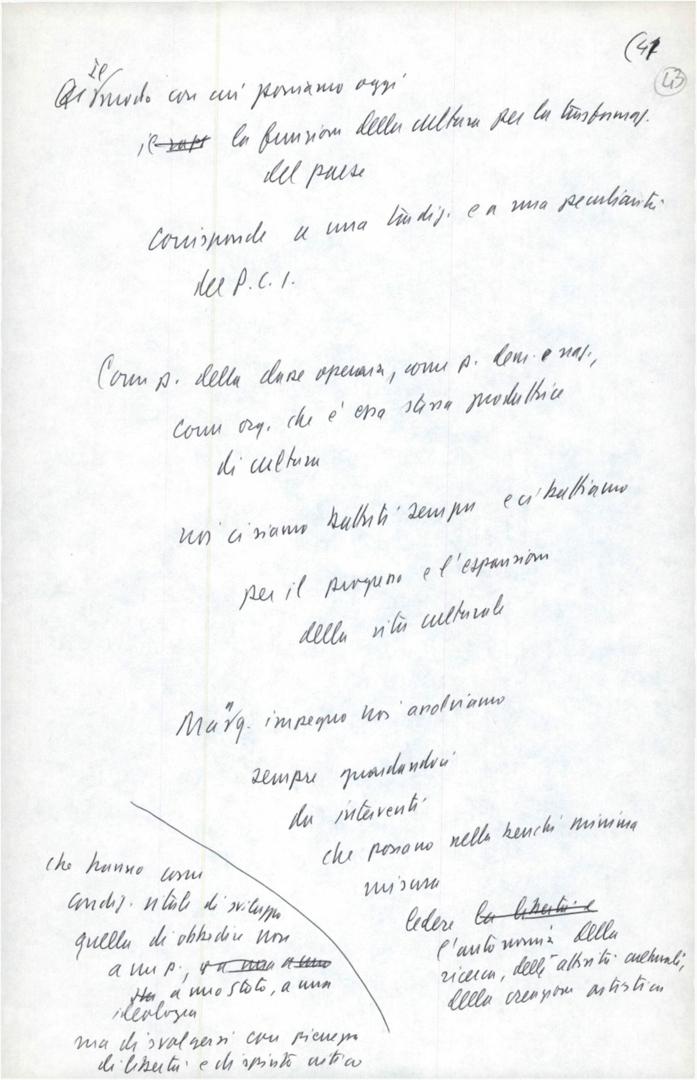 (41
43
Il
modo con cui poniamo oggi
il rapp la funzione della cultura per la trasformaz.
del paese
corrisponde a una tradiz. e a una peculiarità
del P.C.I.
Come p. della classe operaia, come p. dem. e naz.,
come org. che è essa stessa produttrice
di cultura
noi ci siamo battuti sempre e ci battiamo
per il progresso e l'espansione
della vita culturale
Ma q. impegno noi assolviamo
sempre guardandoci
da interventi
che possano nella benché minima
misura
ledere la libertà e
l'autonomia della
ricerca, delle attività culturali,
della creazione artistica
che hanno come
condiz. vitale di sviluppo
quella di obbedire non
a un p., o a una a uno
a uno Stato, a una
ideologia
ma di svolgersi con pienezza
di libertà e di spirito critico